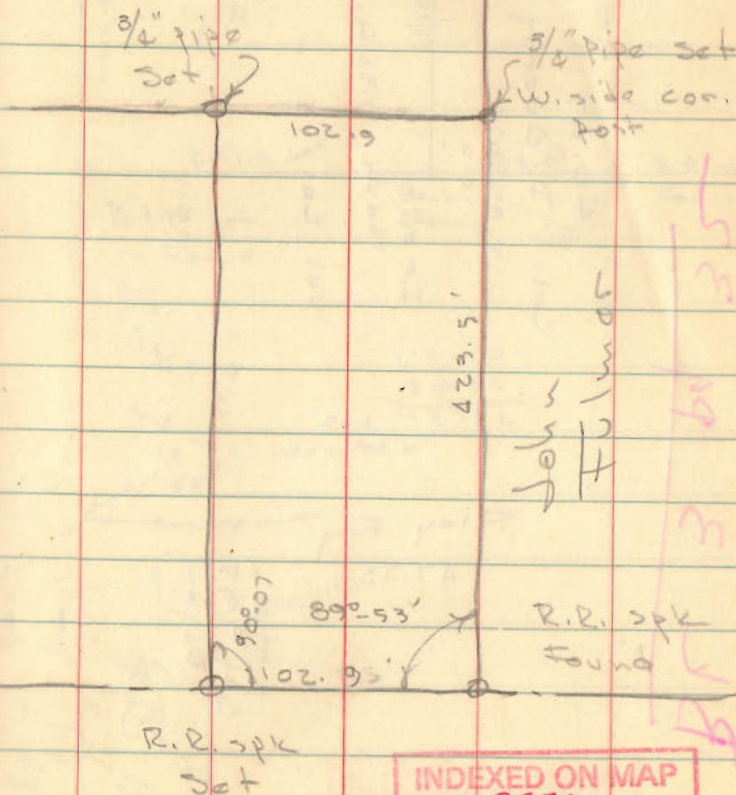 3/4" pipe
Set
3/4" pipe set
W. side cor.
post
102.9
423.5'
John
Fulmer
90°-07
89°-53'
102.95'
R.R. spk
Found
R.R. spk
Set
INDEXED ON MAP